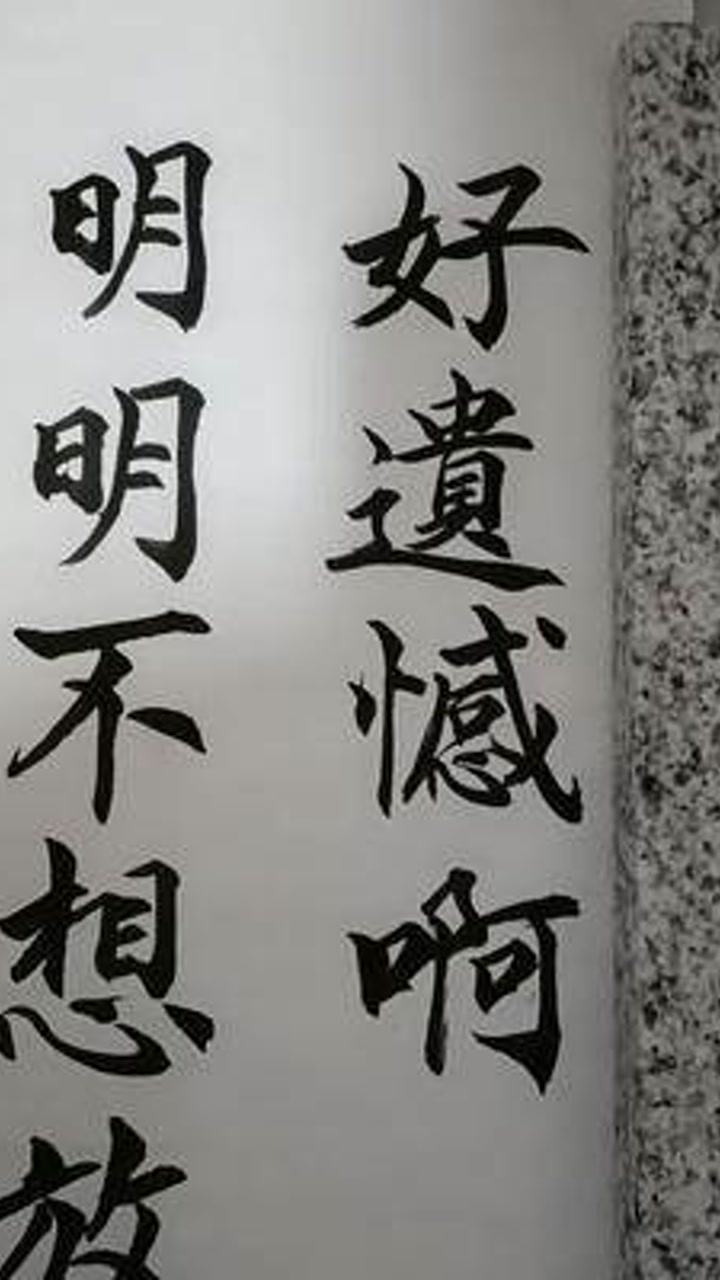 好遺憾啊
明明不想放